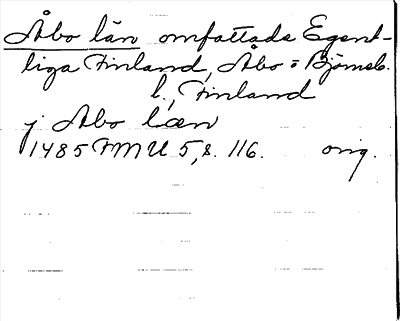 Åbo län omfattade Egent-
liga Finland, Åbo = Björneb.
l., Finland
j Åbo læn
1485 FMU 5, s. 116. orig.